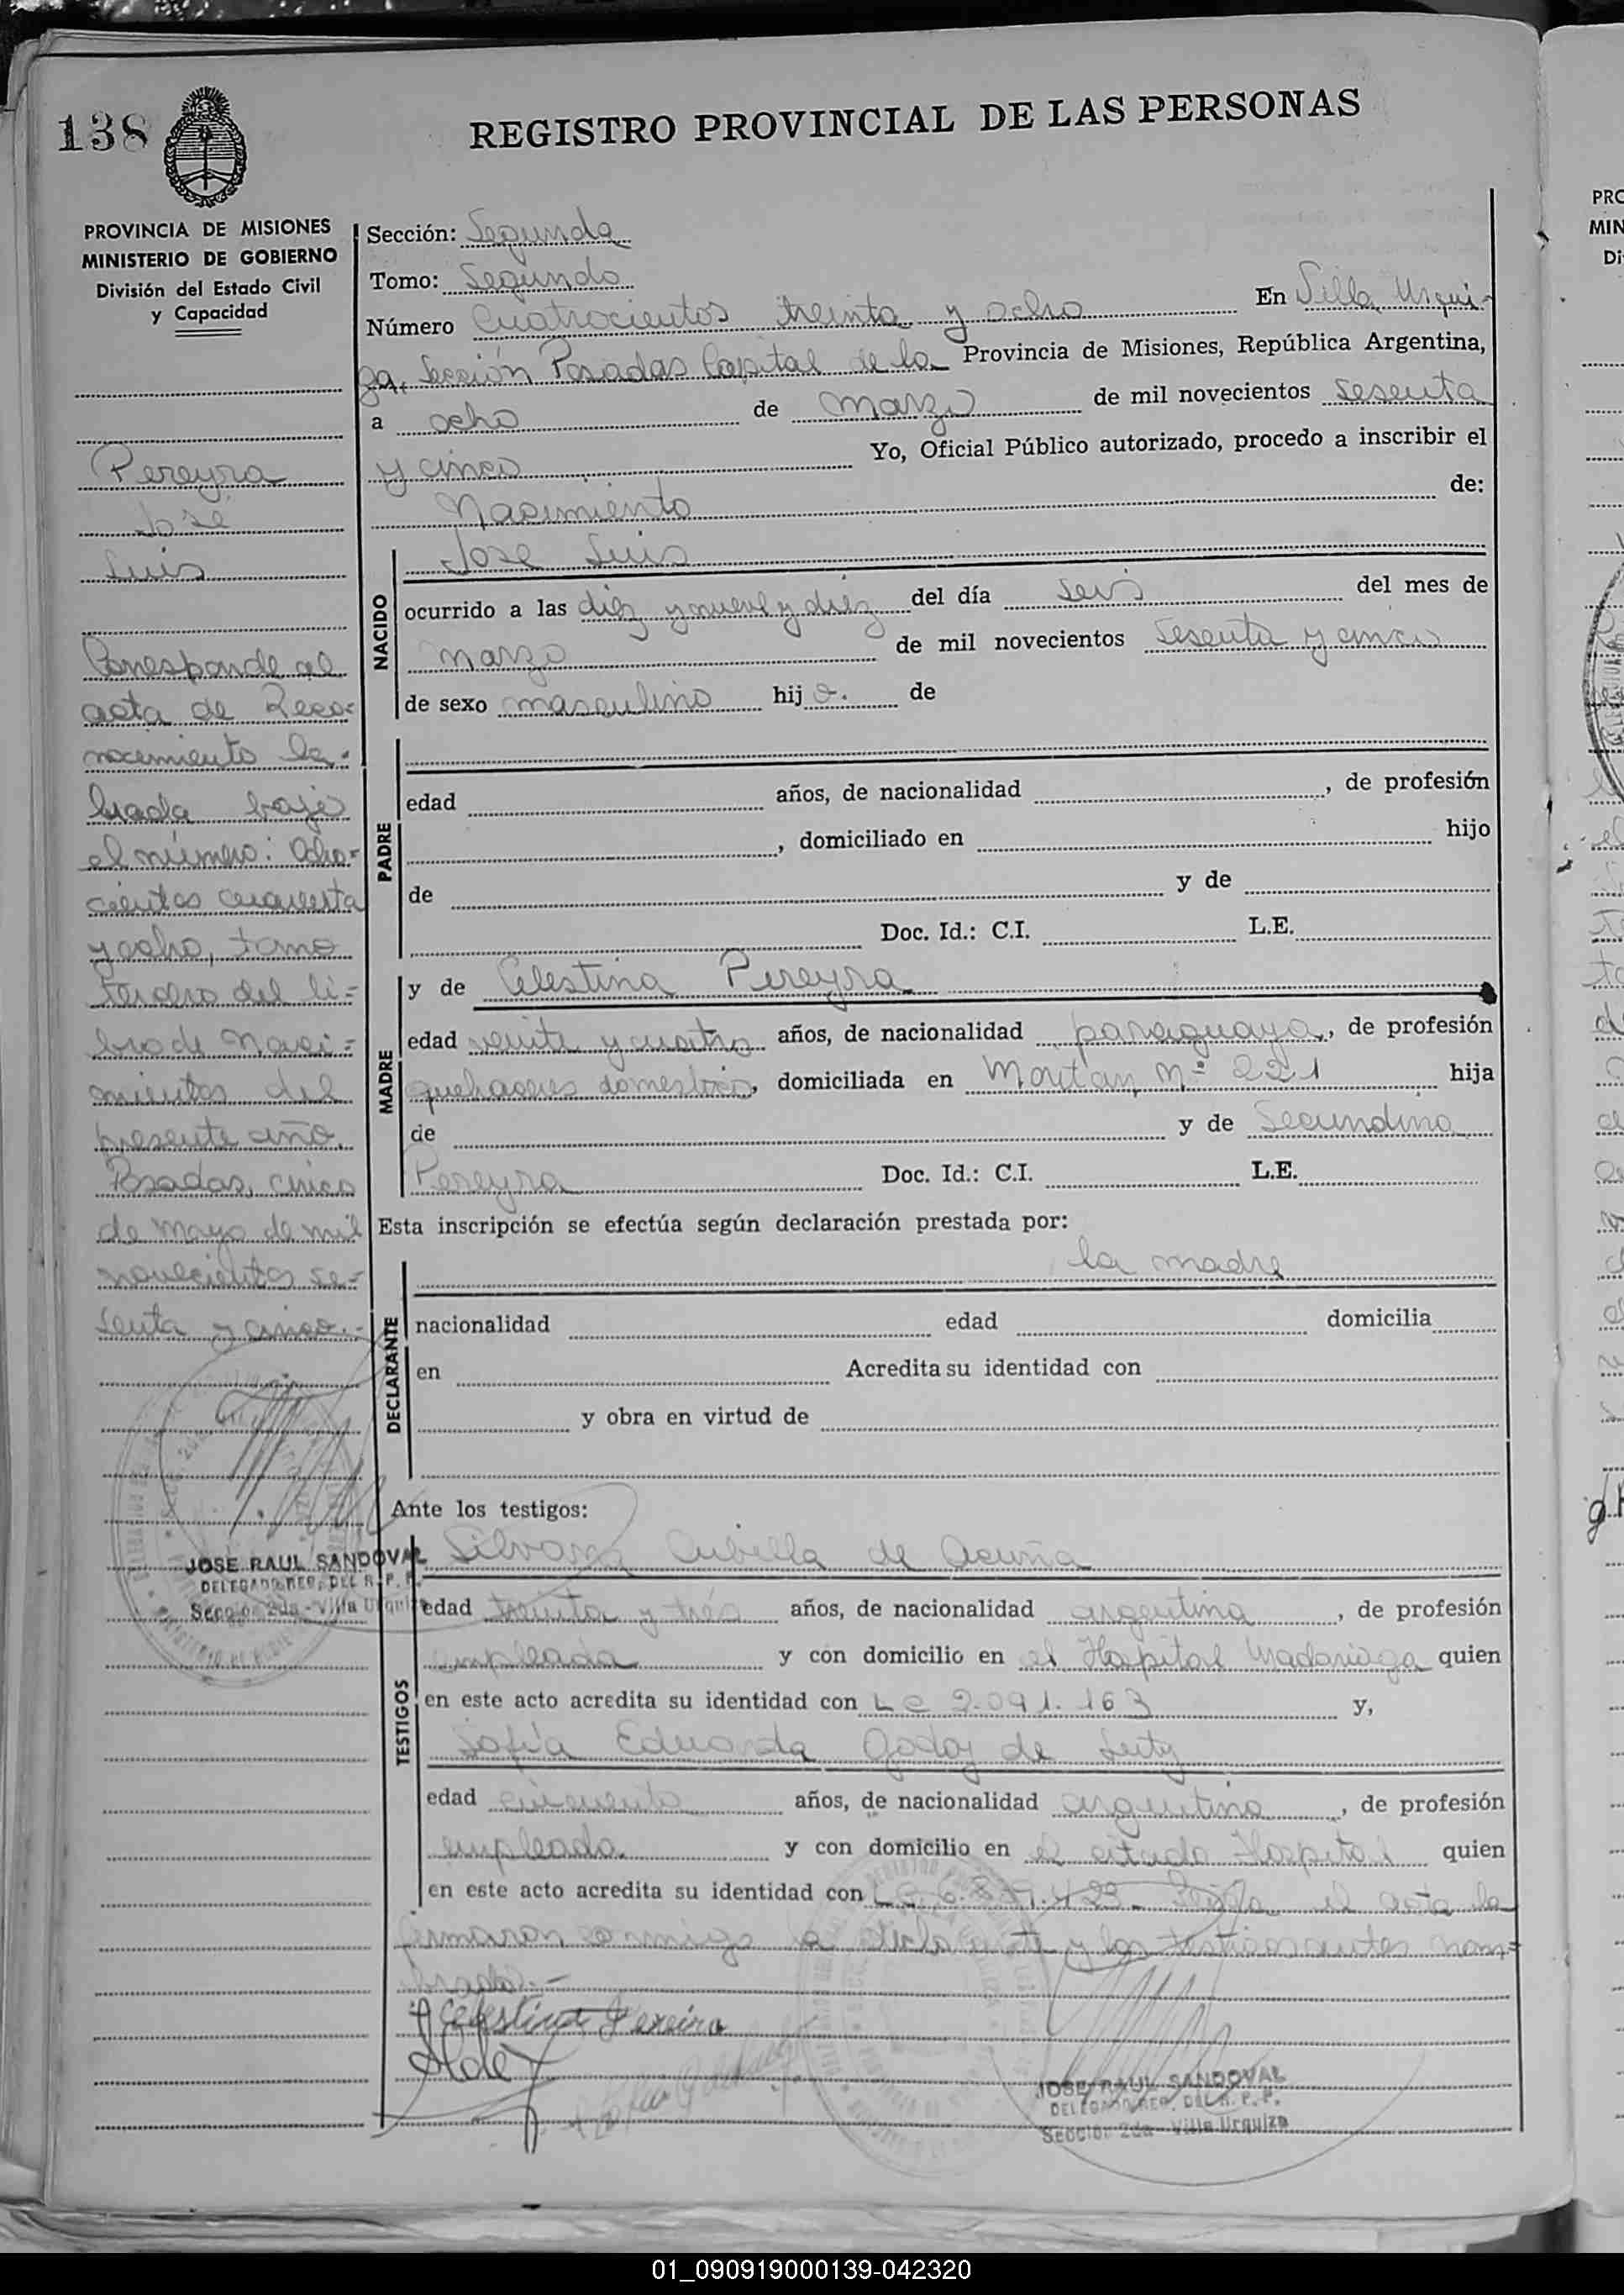 138
REGISTRO PROVINCIAL DE LAS PERSONAS
PROVINCIA DE MISIONES
MINISTERIO DE GOBIERNO
División del Estado Civil
y Capacidad
Pereyra
José
Luis
Corresponde al
acta de Reco-
nocimiento la-
brada bajo
el número: Ocho-
cientos cincuenta
y ocho, tomo
tercero del li-
bro de Naci-
mientos del
presente año.
Posadas, cinco
de Mayo de mil
novecientos se-
senta y cinco.-
JOSE RAUL SANDOVAL
DELEGADO REG. DEL R. P. P.
Sección 2da - Villa Urquiza
Sección: Segunda
Tomo: Segundo
Número Cuatrocientos treinta y ocho En Villa Urqui-
za, Sección Posadas Capital de la Provincia de Misiones, República Argentina,
a ocho de Marzo de mil novecientos sesenta
y cinco Yo, Oficial Público autorizado, procedo a inscribir el
Nacimiento de:
NACIDO
Jose Luis
ocurrido a las diez y nueve y diez del día seis del mes de
Marzo de mil novecientos sesenta y cinco
de sexo masculino hijo. de
PADRE
edad años, de nacionalidad , de profesión
, domiciliado en hijo
de y de
Doc. Id.: C.I. L.E.
MADRE
y de Celestina Pereyra
edad veinte y cuatro años, de nacionalidad paraguaya, de profesión
quehaceres domesticos, domiciliada en N.º 221 hija
de y de Secundina
Pereyra Doc. Id.: C.I. L.E.
Esta inscripción se efectúa según declaración prestada por:
DECLARANTE
la madre
nacionalidad edad domicilia
en Acredita su identidad con
y obra en virtud de
Ante los testigos:
TESTIGOS
Silvana Cubilla de Acuña
edad treinta y tres años, de nacionalidad argentina, de profesión
empleada y con domicilio en el Hospital Madariaga quien
en este acto acredita su identidad con L C 2.091.163 y,
Sofía Eduarda Godoy de
edad cincuenta años, de nacionalidad argentina, de profesión
empleada. y con domicilio en el citado Hospital quien
en este acto acredita su identidad con el acta la
firmaron conmigo la y las nom-
bradas.-
Celestina Pereira
JOSE RAUL SANDOVAL
DELEGADO REG. DEL R. P. P.
Sección 2da - Villa Urquiza
01_090919000139-042320